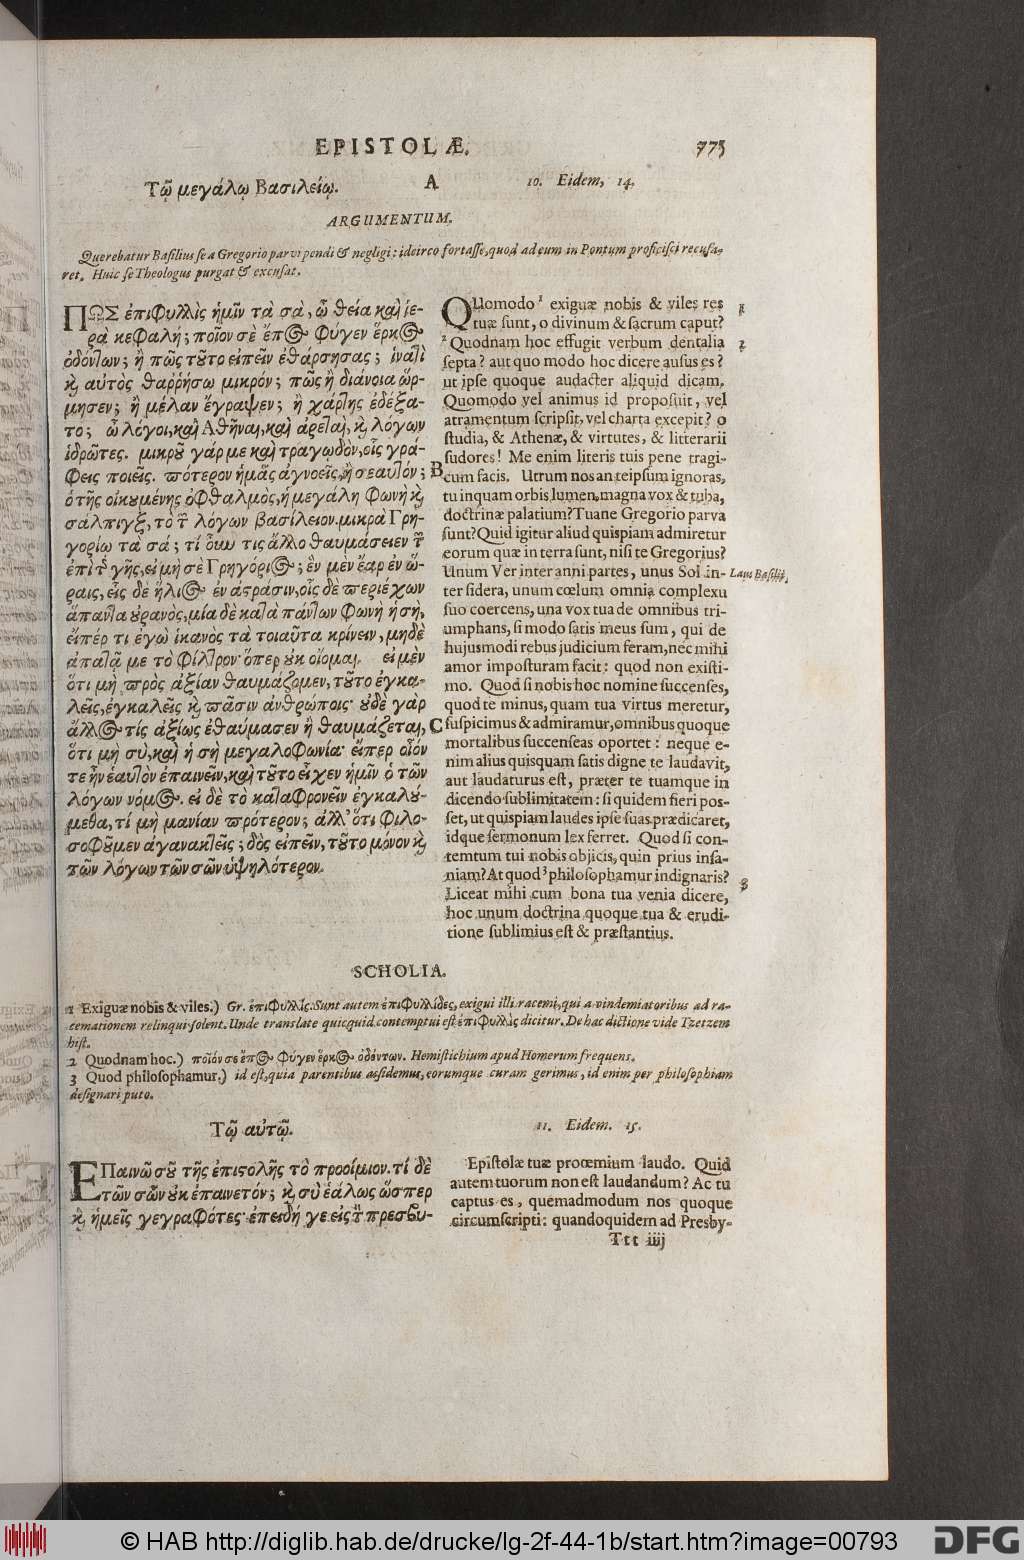 EPISTOLÆ. 775
Τῷ μεγάλῳ Βασιλείῳ.
A
10. Eidem, 14.
ARGUMENTUM.
Querebatur Basilius se a Gregorio parvi pendi & negligi: idcirco fortasse, quod ad eum in Pontum proficisci recusa-
ret. Huic se Theologus purgat & excusat.
ΠΩΣ ἐπιφυλλὶς ἡμῖν τὰ σὰ, ὦ θεία καὶ ἱε-
ρὰ κεφαλή; ποῖον σὲ ἔπος φύγεν ἕρκος
ὀδόντων; ἢ πῶς τοῦτο εἰπεῖν ἐθάρσησας; ἵνα τὶ
καὶ αὐτὸς θαῤῥήσω μικρόν; πῶς ἢ διάνοια ὥρ-
μησεν; ἢ μέλαν ἔγραψεν; ἢ χάρτης ἐδέξα-
το; ὦ λόγοι, καὶ Ἀθῆναι, καὶ ἀρεταὶ, καὶ λόγων
ἱδρῶτες. μικροῦ γάρ με καὶ τραγῳδὸν, οἷς γρά-
φεις ποιεῖς. πότερον ἡμᾶς ἀγνοεῖς, ἢ σεαυτόν;
ὁ τῆς οἰκουμένης ὀφθαλμὸς, ἡ μεγάλη φωνὴ καὶ
σάλπιγξ, τὸ τῶν λόγων βασίλειον. μικρὰ Γρη-
γορίῳ τὰ σά; τί οὖν τις ἄλλο θαυμάσειεν τῶν
ἐπὶ τῆς γῆς, εἰ μὴ σὲ Γρηγόριος; ἓν μὲν ἔαρ ἐν ὥ-
ραις, εἷς δὲ ἥλιος ἐν ἀστράσιν, οἷς δὲ περιέχων
ἅπαντα οὐρανὸς, μία δὲ κατὰ πάντων φωνὴ ἡ σὴ,
εἴπέρ τι ἐγὼ ἱκανὸς τὰ τοιαῦτα κρίνειν, μηδὲ
ἀπατᾷ με τὸ φίλτρον· ὅπερ οὐκ οἴομαι. εἰ μὲν
ὅτι μὴ πρὸς ἀξίαν θαυμάζομεν, τοῦτο ἐγκα-
λεῖς, ἐγκαλεῖς καὶ πᾶσιν ἀνθρώποις· οὐδὲ γὰρ
ἄλλος τίς ἀξίως ἐθαύμασεν ἢ θαυμάζεται,
ὅτι μὴ σὺ, καὶ ἡ σὴ μεγαλοφωνία· εἴπερ οἷόν
τε ἦν ἑαυτὸν ἐπαινεῖν, καὶ τοῦτο εἶχεν ἡμῖν ὁ τῶν
λόγων νόμος. εἰ δὲ τὸ καταφρονεῖν ἐγκαλού-
μεθα, τί μὴ μανίαν πρότερον; ἀλλ’ ὅτι φιλο-
σοφοῦμεν ἀγανακτεῖς; δὸς εἰπεῖν, τοῦτο μόνον καὶ
τῶν λόγων τῶν σῶν ὑψηλότερον.
B
C
QUomodo 1 exiguæ nobis & viles res
tuæ sunt, o divinum & sacrum caput?
2 Quodnam hoc effugit verbum dentalia
septa? aut quo modo hoc dicere ausus es?
ut ipse quoque audacter aliquid dicam.
Quomodo vel animus id proposuit, vel
atramentum scripsit, vel charta excepit? o
studia, & Athenæ, & virtutes, & litterarii
sudores! Me enim literis tuis pene tragi-
cum facis. Utrum nos an teipsum ignoras,
tu inquam orbis lumen, magna vox & tuba,
doctrinæ palatium? Tuane Gregorio parva
sunt? Quid igitur aliud quispiam admiretur
eorum quæ in terra sunt, nisi te Gregorius?
Unum Ver inter anni partes, unus Sol in-
ter sidera, unum cœlum omnia complexu
suo coercens, una vox tua de omnibus tri-
umphans, si modo satis meus sum, qui de
hujusmodi rebus judicium feram, nec mihi
amor imposturam facit: quod non existi-
mo. Quod si nobis hoc nomine succenses,
quod te minus, quam tua virtus meretur,
suspicimus & admiramur, omnibus quoque
mortalibus succenseas oportet: neque e-
nim alius quisquam satis digne te laudavit,
aut laudaturus est, præter te tuamque in
dicendo sublimitatem: si quidem fieri pos-
set, ut quispiam laudes ipse suas prædicaret,
idque sermonum lex ferret. Quod si con-
temtum tui nobis objicis, quin prius insa-
niam? At quod 3 philosophamur indignaris?
Liceat mihi cum bona tua venia dicere,
hoc unum doctrina quoque tua & erudi-
tione sublimius est & præstantius.
1
2
Laus Basilij,
3
SCHOLIA.
1 Exiguæ nobis & viles.) Gr. ἐπιφυλλίς. Sunt autem ἐπιφυλλίδες, exigui illi racemi, qui a vindemiatoribus ad ra-
cemationem relinqui solent. Unde translate quicquid contemptui est ἐπιφυλλὶς dicitur. De hac dictione vide Tzetzem
hist.
2 Quodnam hoc.) ποῖόν σε ἔπος φύγεν ἕρκος ὀδόντων. Hemistichium apud Homerum frequens.
3 Quod philosophamur.) id est, quia parentibus assidemus, eorumque curam gerimus, id enim per philosophiam
designari puto.
Τῷ αὐτῷ.
11. Eidem. 15.
ΕΠαινῶ σοῦ τῆς ἐπιστολῆς τὸ προοίμιον. τί δὲ
τῶν σῶν οὐκ ἐπαινετόν; καὶ σὺ ἑάλως ὥσπερ
καὶ ἡμεῖς γεγραφότες· ἐπειδή γε εἰς τὸ πρεσβυ-
Epistolæ tuæ proœmium laudo. Quid
autem tuorum non est laudandum? Ac tu
captus es, quemadmodum nos quoque
circumscripti: quandoquidem ad Presby-
Ttt iiij
© HAB http://diglib.hab.de/drucke/lg-2f-44-1b/start.htm?image=00793
DFG